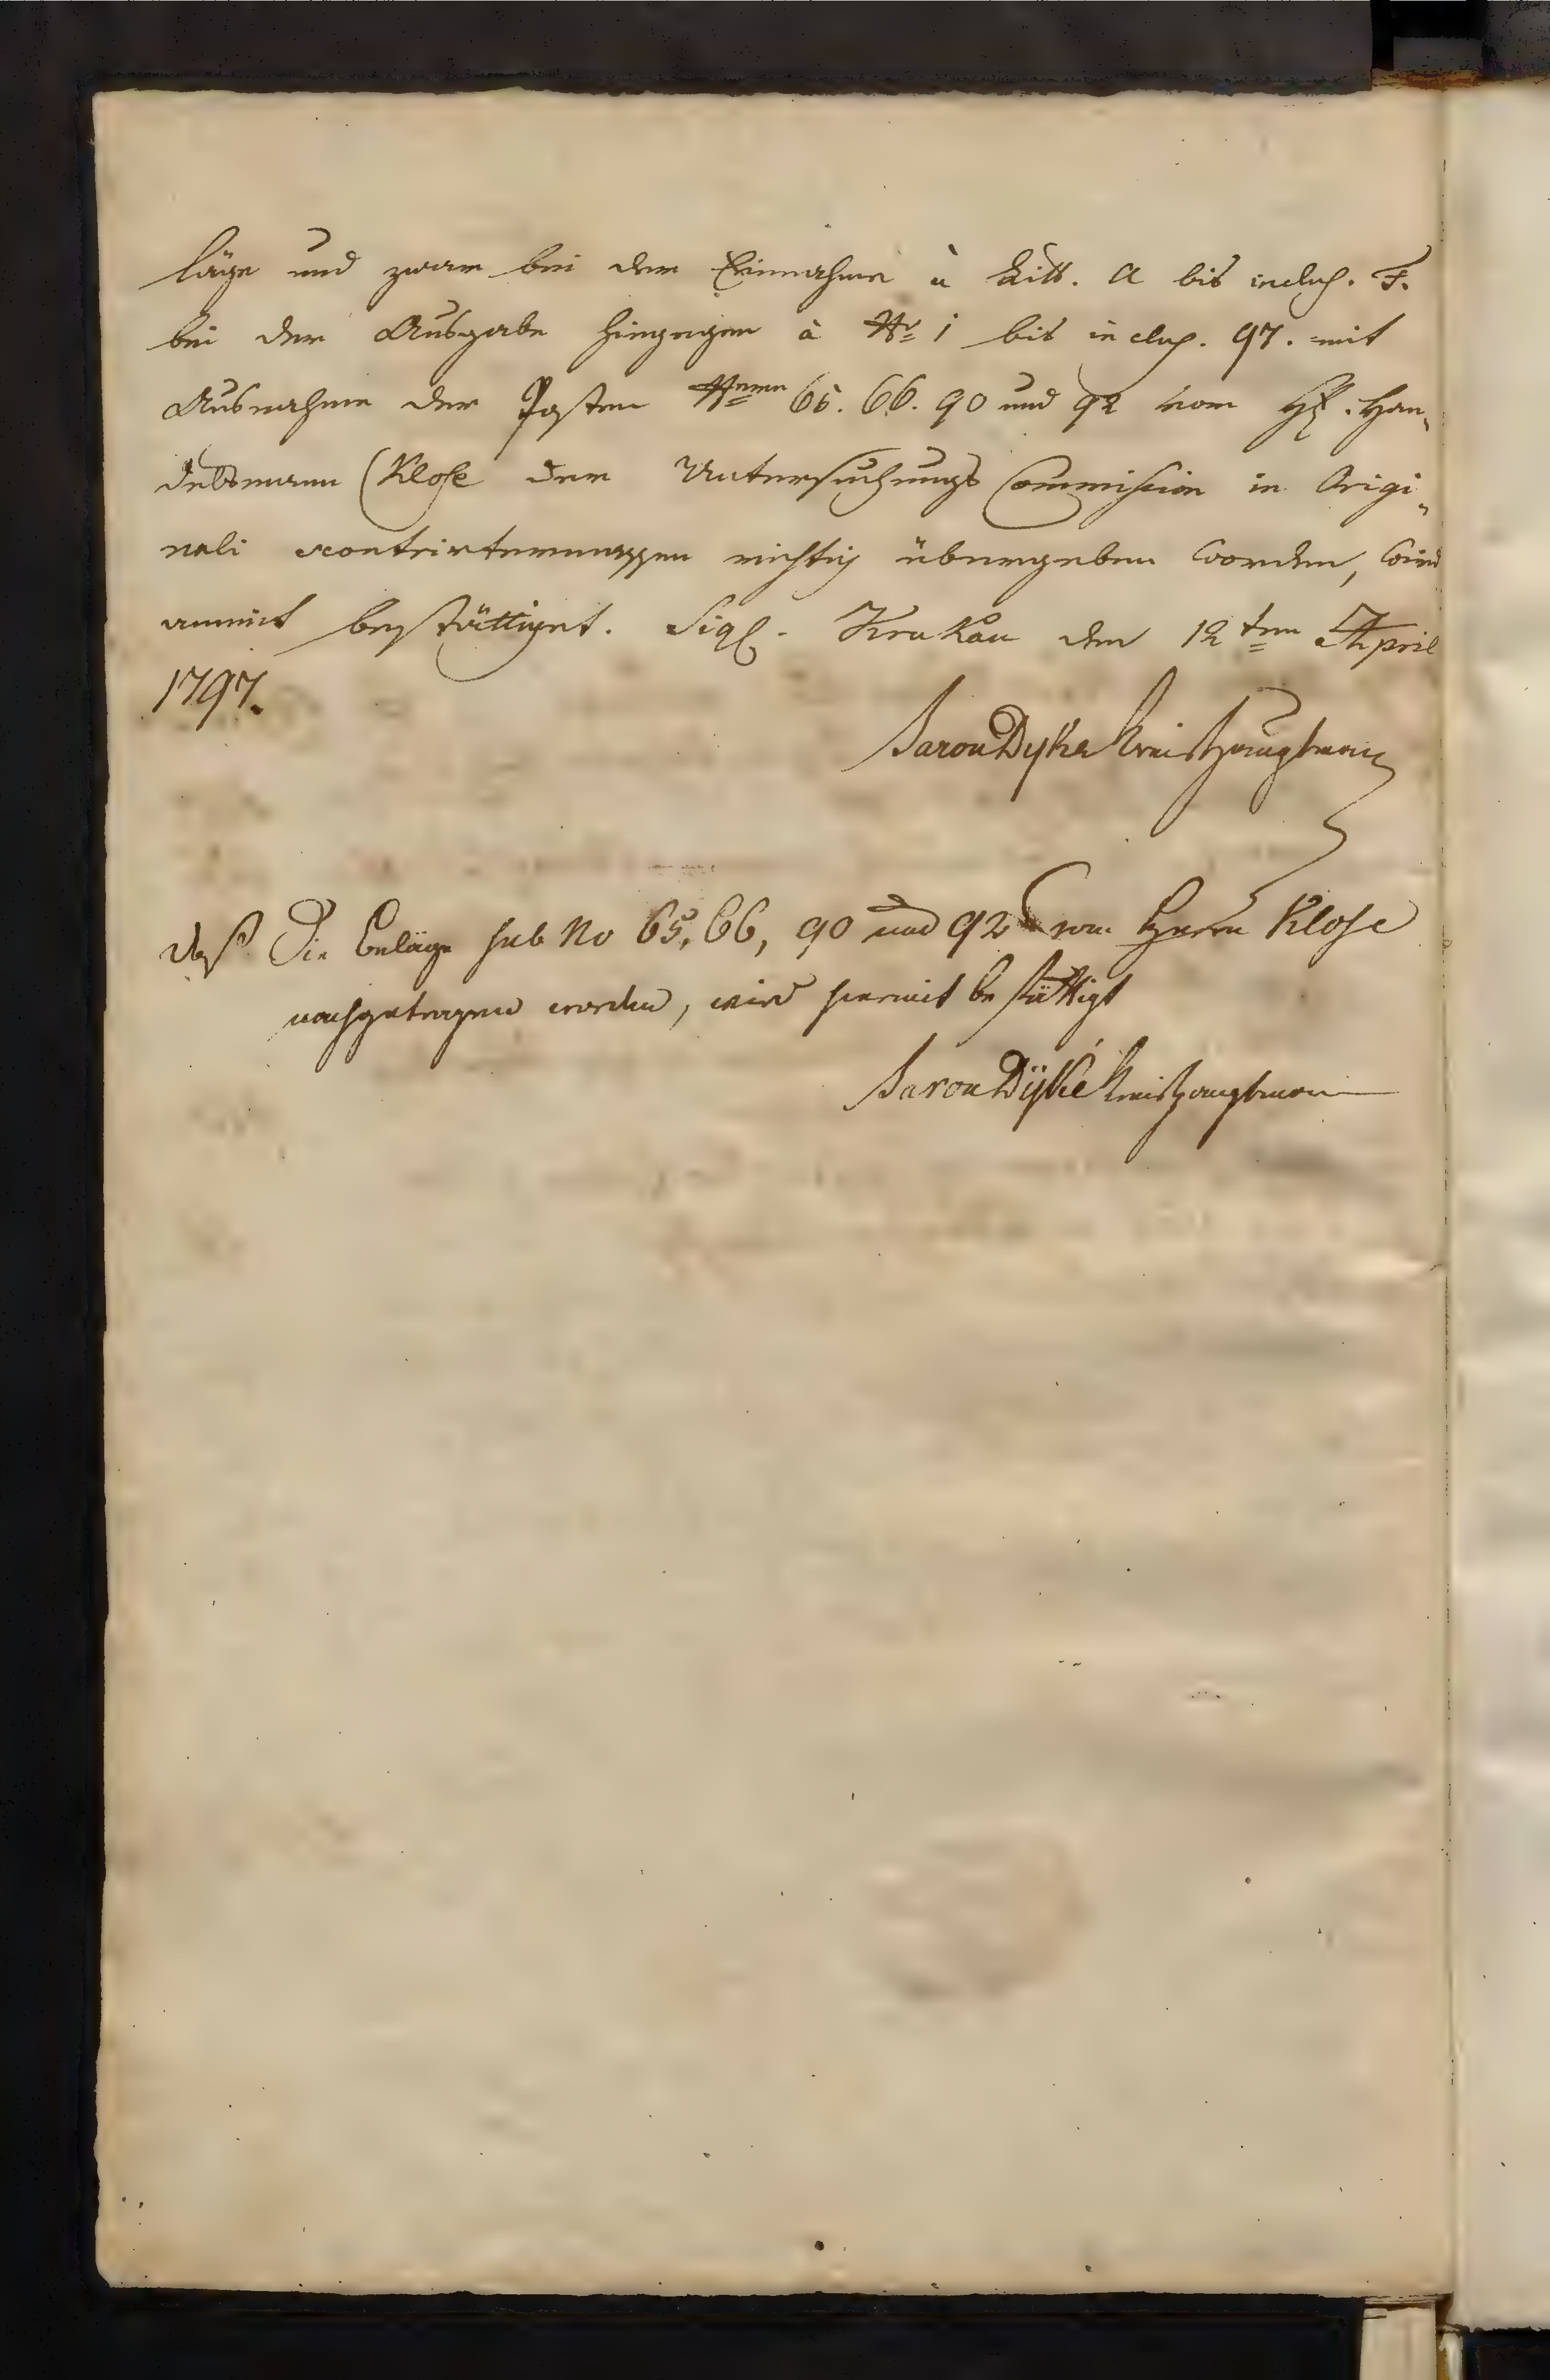 läge und zwar bei der Einnahme à Litt. A bis inclus. F.
bei der Ausgabe hingegen à Nr. 1 bis inclus. 97. mit
Ausnahme der Posten Nrn 65. 66. 90 und 92 vom H. Han„
delsmann Klose der Untersuchungs Commission in Origi„
nali scontrirtermassen richtig übergeben worden, wird
anmit bestättiget. Sigl. Krakau den 12ten April
1797.
Baron Dyke Kreishauptmann
daß die Beläge sub No 65, 66, 90 und 92 vom Herrn Klose
nachgetragen worden, wird hiermit bestättigt
Baron Dÿke Kreishauptmann